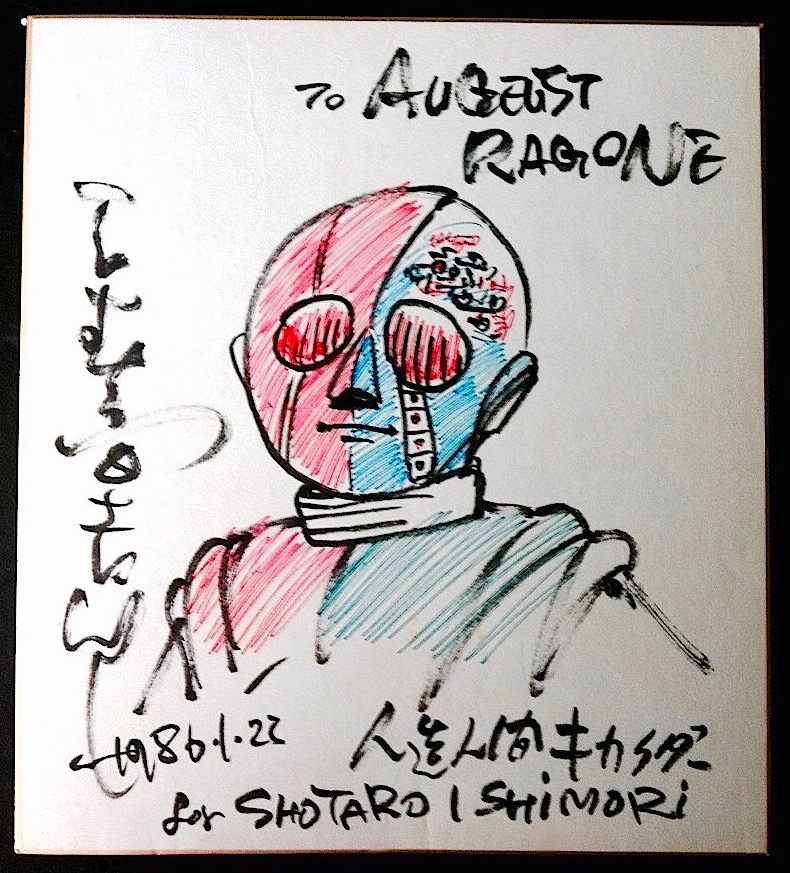 To AUGEUST
RAGONE
1986.1.22
人造人間キカイダー
for SHOTARO ISHIMORI